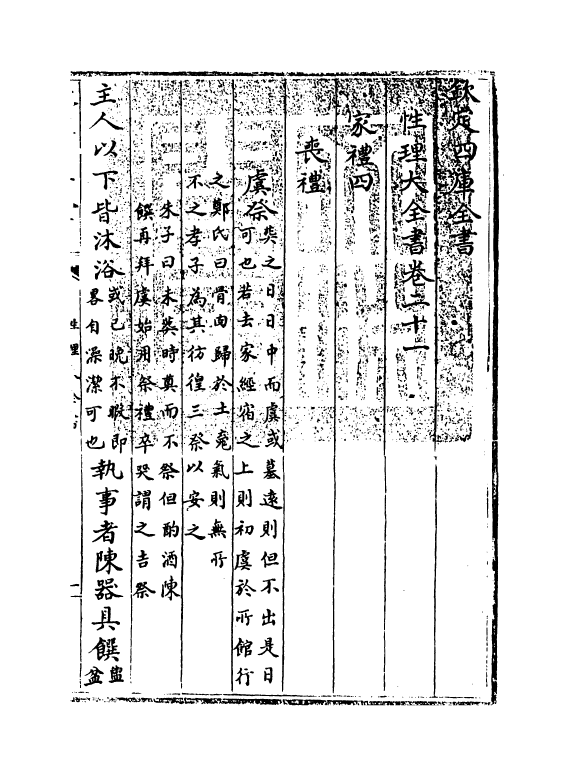 欽定四庫全書
性理大全書卷二十一
家禮四
喪禮
虞祭葬之日日中而虞或墓遠則但不出是日
可也若去家經宿之上則初虞於所館行
之鄭氏曰骨肉歸於土魂氣則無所
不之孝子為其彷徨三祭以安之
朱子曰未葬時奠而不祭但酌酒陳
饌再拜虞始用祭禮卒哭謂之吉祭
主人以下皆沐浴或已晚不暇即
畧自澡潔可也執事者陳器具饌盥
盆
性理大全書
一